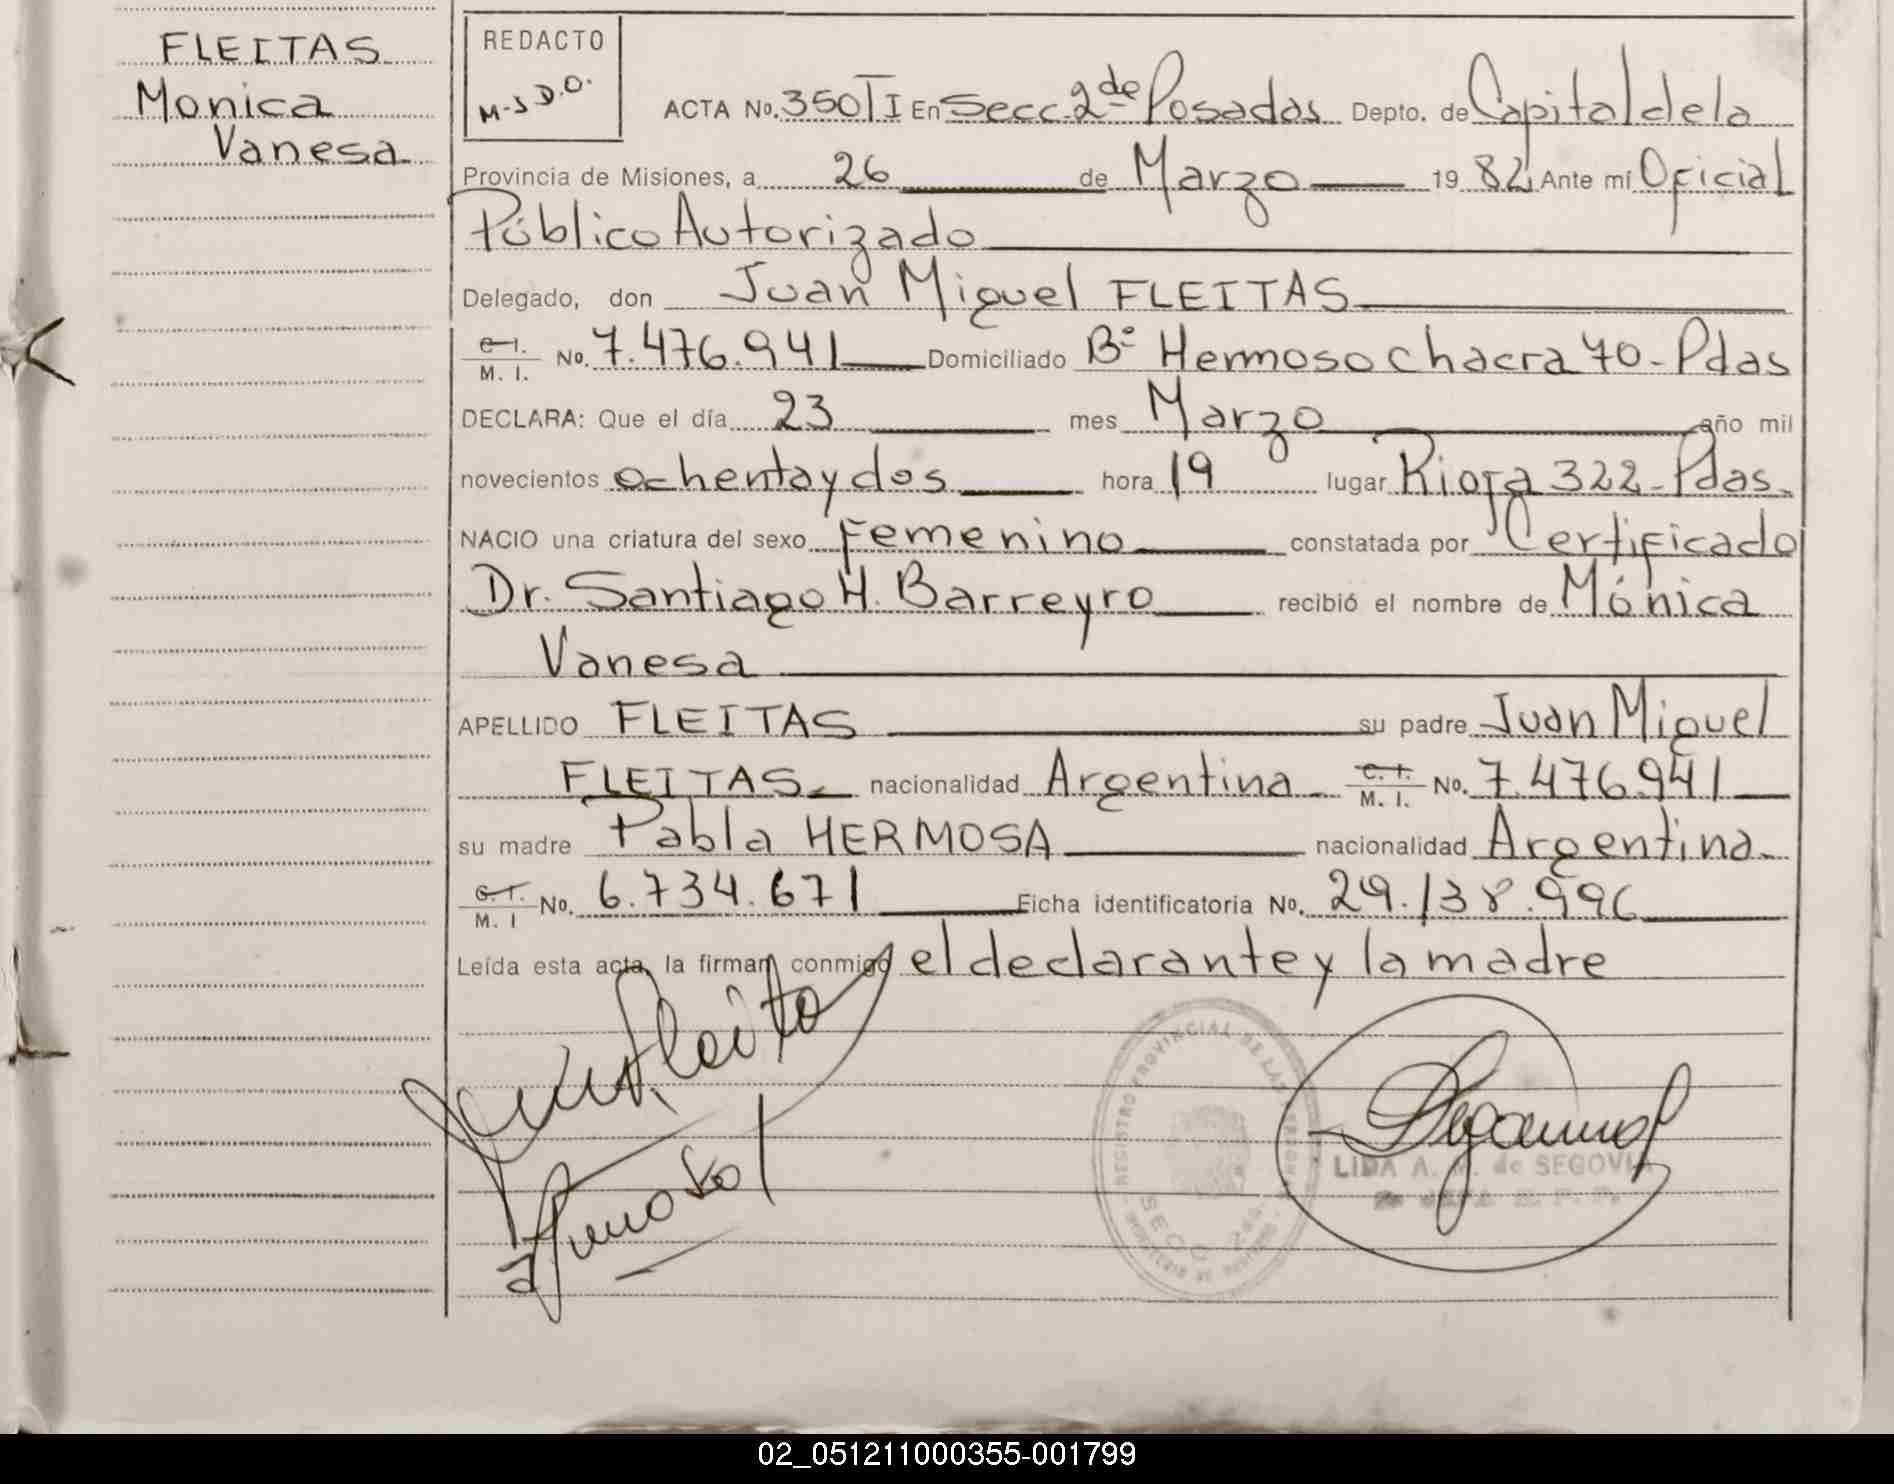 FLEITAS
Monica
Vanesa
REDACTO
M-J D.O.
ACTA No. 350 T I En Secc. 2de Posadas Depto. de Capital de la
Provincia de Misiones, a 26 de Marzo 19 82 Ante mí Oficial
Público Autorizado
Delegado, don Juan Miguel FLEITAS
C. I. M. I. No. 7.476.941 Domiciliado Bº Hermoso chacra 70- Pdas
DECLARA: Que el día 23 mes Marzo año mil
novecientos ochenta y dos hora 19 lugar Rioja 322- Pdas.
NACIO una criatura del sexo Femenino constatada por Certificado
Dr. Santiago H. Barreyro recibió el nombre de Mónica
Vanesa
APELLIDO FLEITAS su padre Juan Miguel
FLEITAS nacionalidad Argentina C. I. M. I. No. 7.476.941
su madre Pabla HERMOSA nacionalidad Argentina
C. I. M. I No. 6.734.671 Ficha identificatoria No. 29.138.996
Leída esta acta, la firman conmigo el declarante y la madre
REGISTRO PROVINCIAL DE LAS PERSONAS
SECC. 2da.
LIDA A. M. de SEGOVIA
02_051211000355-001799